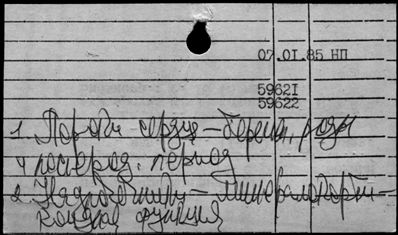 07.01.85 НП
59621
59622
1. Пороки сердца – Берем., роды
и послерод. период
2. Надпочечники – минералокорти-
коидная функция